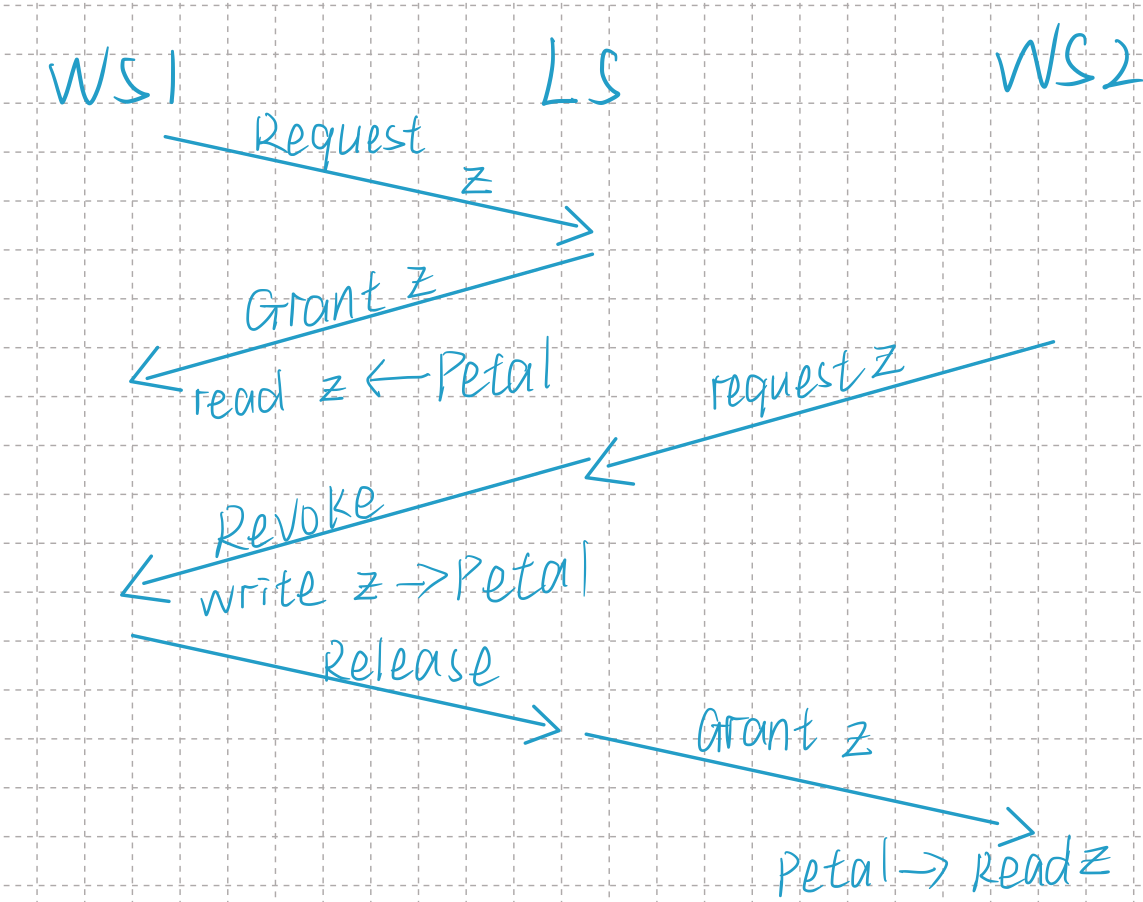 WS1 LS WS2
Request z
Grant z
read z ← Petal
request z
Revoke
write z → Petal
Release
Grant z
Petal → Read z